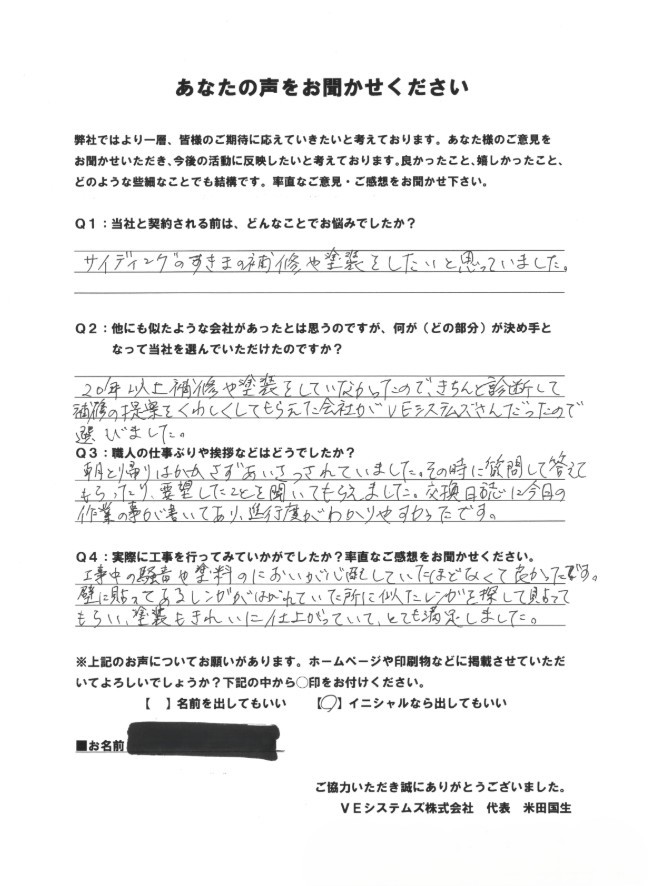 あなたの声をお聞かせください
弊社ではより一層、皆様のご期待に応えていきたいと考えております。あなた様のご意見を
お聞かせいただき、今後の活動に反映したいと考えております。良かったこと、嬉しかったこと、
どのような些細なことでも結構です。率直なご意見・ご感想をお聞かせ下さい。
Q1：当社と契約される前は、どんなことでお悩みでしたか？
サイディングのすきまの補修や塗装をしたいと思っていました。
Q2：他にも似たような会社があったとは思うのですが、何が（どの部分）が決め手と
なって当社を選んでいただけたのですか？
20年以上補修や塗装をしていなかったので、きちんと診断して
補修の提案をくわしくしてもらえた会社がVEシステムズさんだったので
選びました。
Q3：職人の仕事ぶりや挨拶などはどうでしたか？
朝と帰りはかかさずあいさつされていました。その時に質問して答えて
もらったり、要望したことを聞いてもらえました。交換日誌に今日の
作業の事が書いてあり、進行度がわかりやすかったです。
Q4：実際に工事を行ってみていかがでしたか？率直なご感想をお聞かせください。
工事中の騒音や塗料のにおいが心配していたほどなくて良かったです。
壁に貼ってあるレンガがはがれていた所に似たレンガを探して貼って
もらい、塗装もきれいに仕上がっていて、とても満足しました。
※上記のお声についてお願いがあります。ホームページや印刷物などに掲載させていただ
いてよろしいでしょうか？下記の中から○印をお付けください。
【　】名前を出してもいい　【○】イニシャルなら出してもいい
■お名前
ご協力いただき誠にありがとうございました。
VEシステムズ株式会社　代表　米田国生